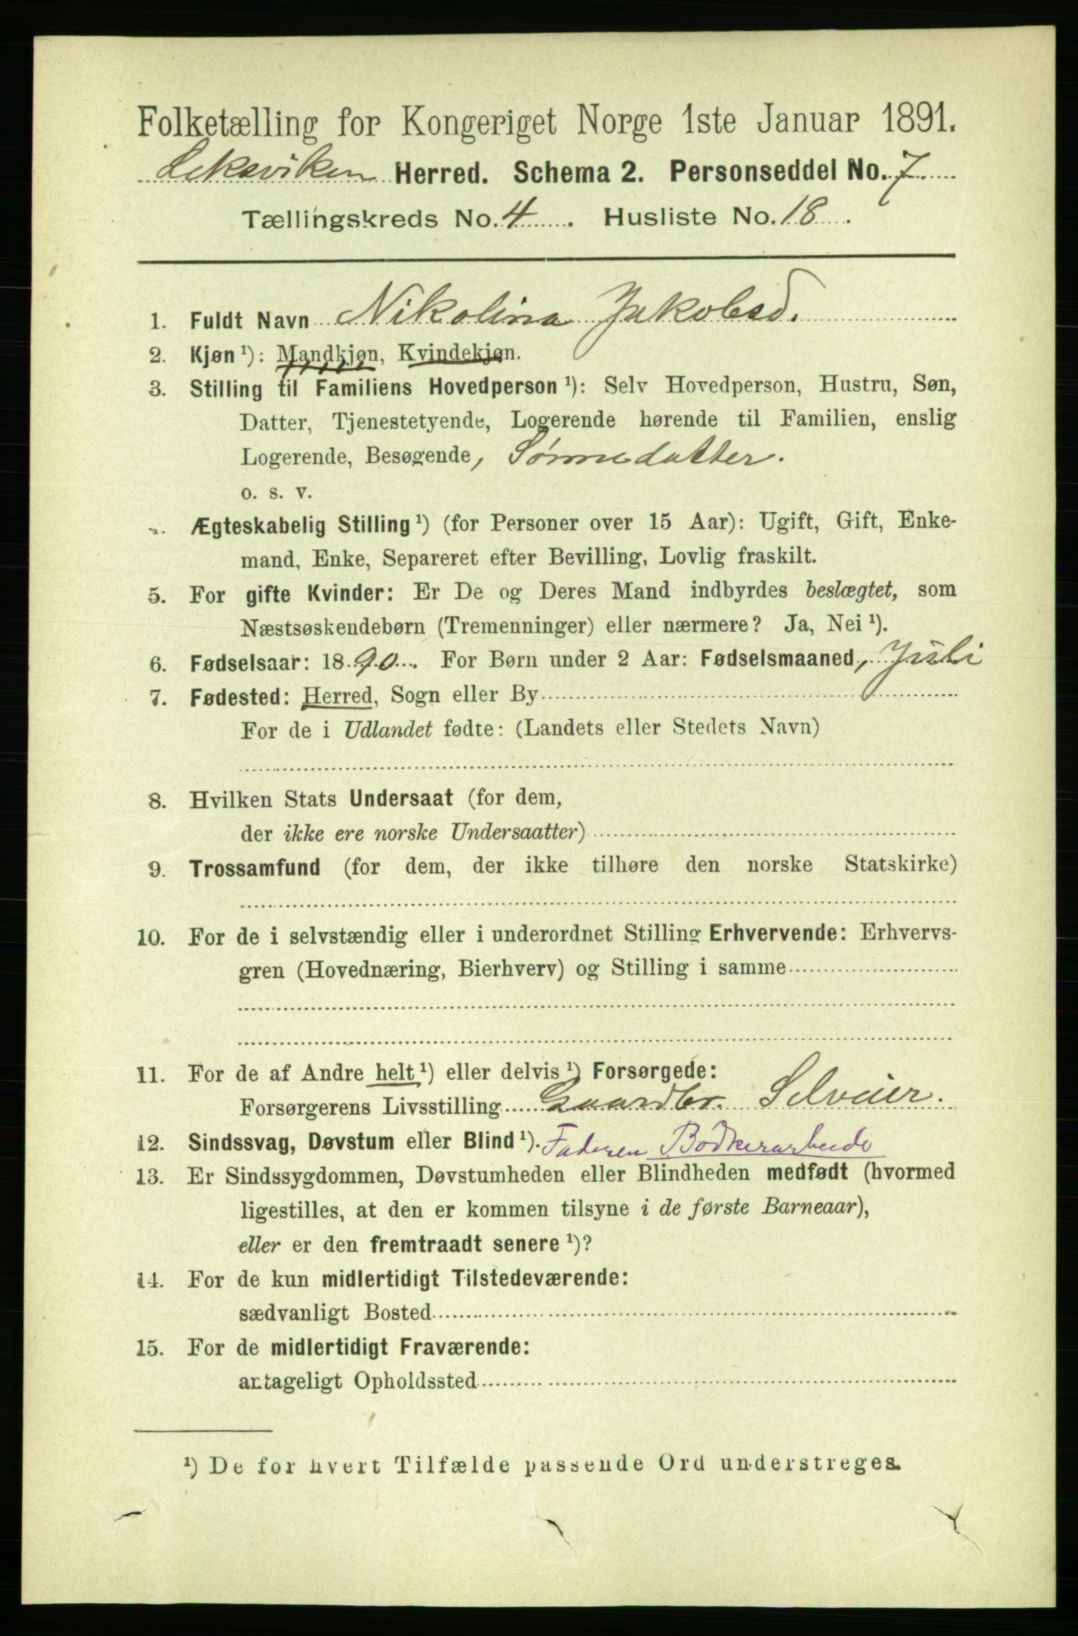 Folketælling for Kongeriget Norge 1ste Januar 1891.
Leksviken Herred. Schema 2. Personseddel No. 7.
Tællingskreds No. 4. Husliste No. 18.
1. Fuldt Navn Nikolina Jakobsd.
2. Kjøn ¹): Mandkjøn, Kvindekjøn.
3. Stilling til Familiens Hovedperson ¹): Selv Hovedperson, Hustru, Søn,
Datter, Tjenestetyende, Logerende hørende til Familien, enslig
Logerende, Besøgende, Sønnedatter.
o. s. v.
Ægteskabelig Stilling ¹) (for Personer over 15 Aar): Ugift, Gift, Enke-
mand, Enke, Separeret efter Bevilling, Lovlig fraskilt.
5. For gifte Kvinder: Er De og Deres Mand indbyrdes beslægtet, som
Næstsøskendebørn (Tremenninger) eller nærmere? Ja, Nei ¹).
6. Fødselsaar: 1890. For Børn under 2 Aar: Fødselsmaaned, Juli
7. Fødested: Herred, Sogn eller By
For de i Udlandet fødte: (Landets eller Stedets Navn)
8. Hvilken Stats Undersaat (for dem,
der ikke ere norske Undersaatter)
9. Trossamfund (for dem, der ikke tilhøre den norske Statskirke)
10. For de i selvstændig eller i underordnet Stilling Erhvervende: Erhvervs-
gren (Hovednæring, Bierhverv) og Stilling i samme
11. For de af Andre helt ¹) eller delvis ¹) Forsørgede:
Forsørgerens Livsstilling Gaardbr. Selveier.
12. Sindssvag, Døvstum eller Blind ¹). Faderen Bødkerarbeide
13. Er Sindssygdommen, Døvstumheden eller Blindheden medfødt (hvormed
ligestilles, at den er kommen tilsyne i de første Barneaar),
eller er den fremtraadt senere ¹)?
14. For de kun midlertidigt Tilstedeværende:
sædvanligt Bosted
15. For de midlertidigt Fraværende:
antageligt Opholdssted
¹) De for hvert Tilfælde passende Ord understreges.